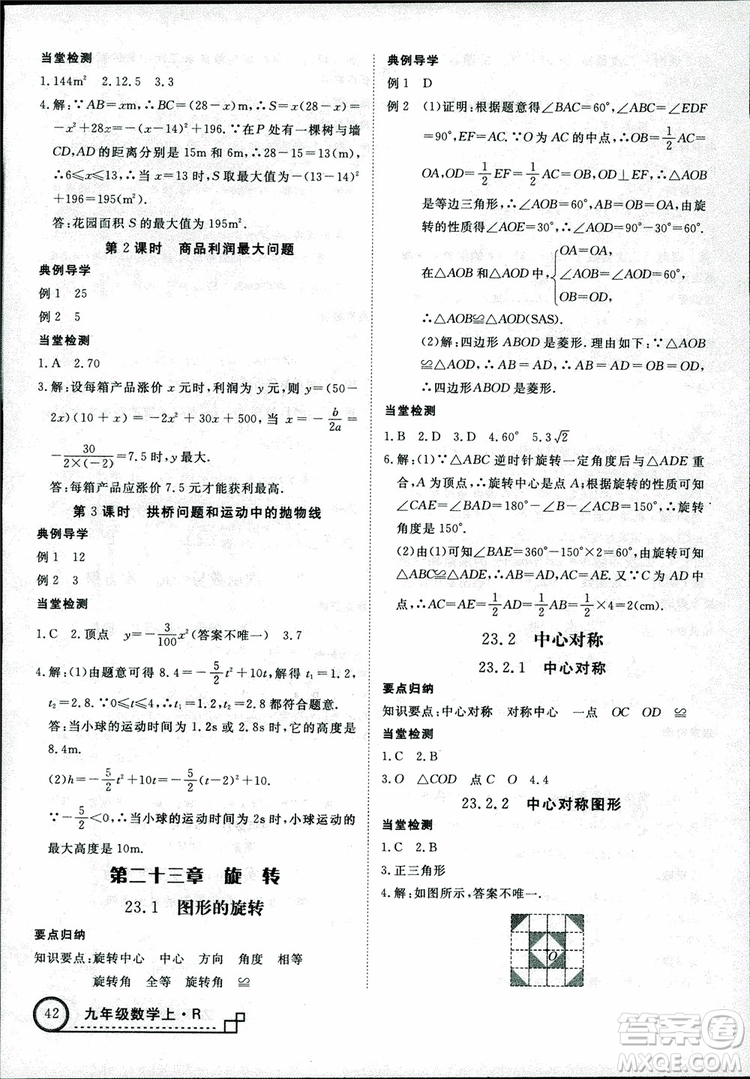 当堂检测
1.144m² 2.12.5 3.3
4.解:∵AB=xm,∴BC=(28-x)m,∴S=x(28-x)=
-x²+28x=-(x-14)²+196.∵在P处有一棵树与墙
CD,AD的距离分别是15m和6m,∴28-15=13,
∴6≤x≤13,∴当x=13时,S取最大值为-(13-14)²
+196=195(m²).
答:花园面积S的最大值为195m².
第2课时 商品利润最大问题
典例导学
例1 25
例2 5
当堂检测
1.A 2.70
3.解:设每箱产品涨价x元时,利润为y元,则y=(50-
2x)(10+x)=-2x²+30x+500,当x=-b/2a=
-30/(2×(-2))=7.5时,y最大.
答:每箱产品应涨价7.5元才能获得最大利润.
第3课时 拱桥问题和运动中的抛物线
典例导学
例1 12
例2 3
当堂检测
1.C 2.顶点 y=-3/100x²(答案不唯一) 3.7
4.解:(1)由题意可得8.4=-5/2t²+10t,解得t₁=1.2,
t₂=2.8.∵0≤t≤4,∴t₁=1.2,t₂=2.8都符合题意.
答:当小球的运动时间为1.2s或2.8s时,它的高度是
8.4m.
(2)h=-5/2t²+10t=-5/2(t-2)²+10.
∵-5/2<0,∴当小球的运动时间为2s时,小球运动的
最大高度是10m.
第二十三章 旋 转
23.1 图形的旋转
要点归纳
知识要点:旋转中心 中心 方向 角度 相等
旋转角 全等 旋转角 ≌
42 九年级数学上·R
典例导学
例1 D
例2 (1)证明:根据题意∠BAC=60°,∠BAC=∠EDF
=90°.∵O为AC的中点,∴OB=1/2AC=
OA,OD=1/2EF=OA,OD⊥EF,∴△AOB
是等边三角形,∴∠AOB=60°,OB=OA.由
旋转的性质∠AOE=30°,∴∠AOD=60°.
在△AOB和△AOD中{OA=OA,
∠AOB=∠AOD=60°,
OB=OD,
∴△AOB≌△AOD(SAS).
(2)解:四边形ABOD是菱形.理由如下:∵△AOB
≌△AOD,∴AB=AD=OB=OD=OA,
∴四边形ABOD是菱形.
当堂检测
1.B 2.D 3.D 4.60° 5.3√2
6.解:(1)∵△ABC逆时针旋转一定角度后与△ADE重
合,A为顶点,∴旋转中心是点A;根据旋转的性质可知
∠CAE=∠BAD=180°-∠B-∠ACB=150°,∴旋
转角度是150°.
(2)由(1)可知∠BAE=360°-150°×2=60°,由旋转可知
△ABC≌△ADE,∴AB=AD,AC=AE.又∵C为AD中
点,∴AC=AE=1/2AD=1/2AB=1/2×4=2(cm).
23.2 中心对称
23.2.1 中心对称
要点归纳
知识要点:中心对称 对称中心 一点 OC OD ≌
当堂检测
1.C 2.B
3.O △COD 点C O 4.4
23.2.2 中心对称图形
当堂检测
1.C 2.B
3.正三角形
4.解:如图所示,答案不唯一.
O
答案圈
MXQE.COM